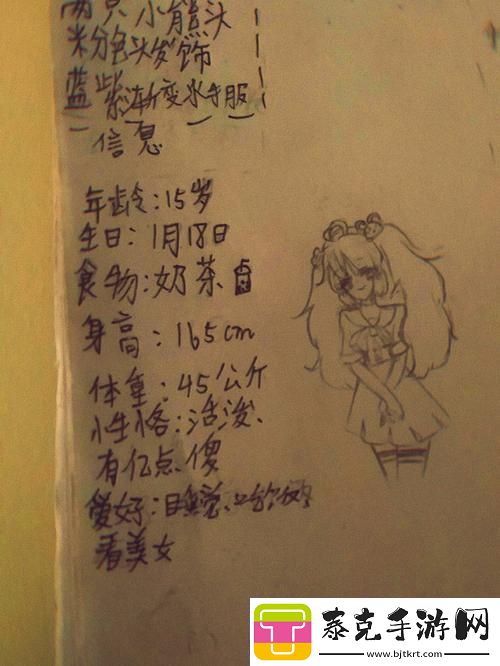 两只小熊头
米分色头发饰
蓝紫渐变水手服
信息
年龄:15岁
生日:1月18日
食物:奶茶
身高:165cm
体重:45公斤
性格:活泼、
有亿点傻
爱好:睡觉、
看美女
泰克手游网
www.bjtkrt.com